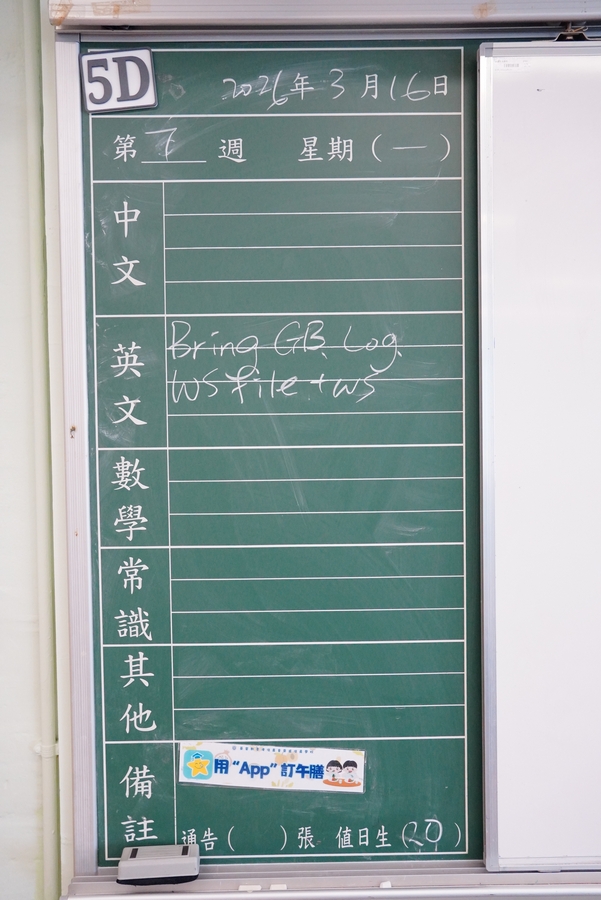 5D
2026年3月16日
第 週 星期(一)
中文
英文
Bring GB. Log.
WS file + WS
數學
常識
其他
備註
用“App”訂午膳
通告( )張 值日生(20)